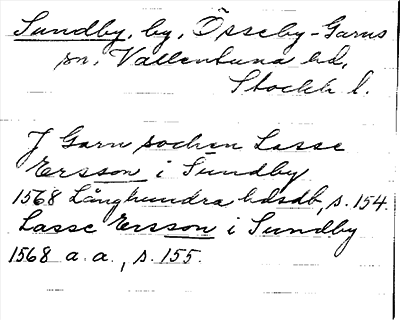 Sundby, by, Össeby-Garns
sn, Vallentuna hd,
Stockh l.
J Garn sochen Lasse
Ersson i Sundby
1568 Långhundra hdsdb, s. 154.
Lasse Ersson i Sundby
1568 a. a., s. 155.